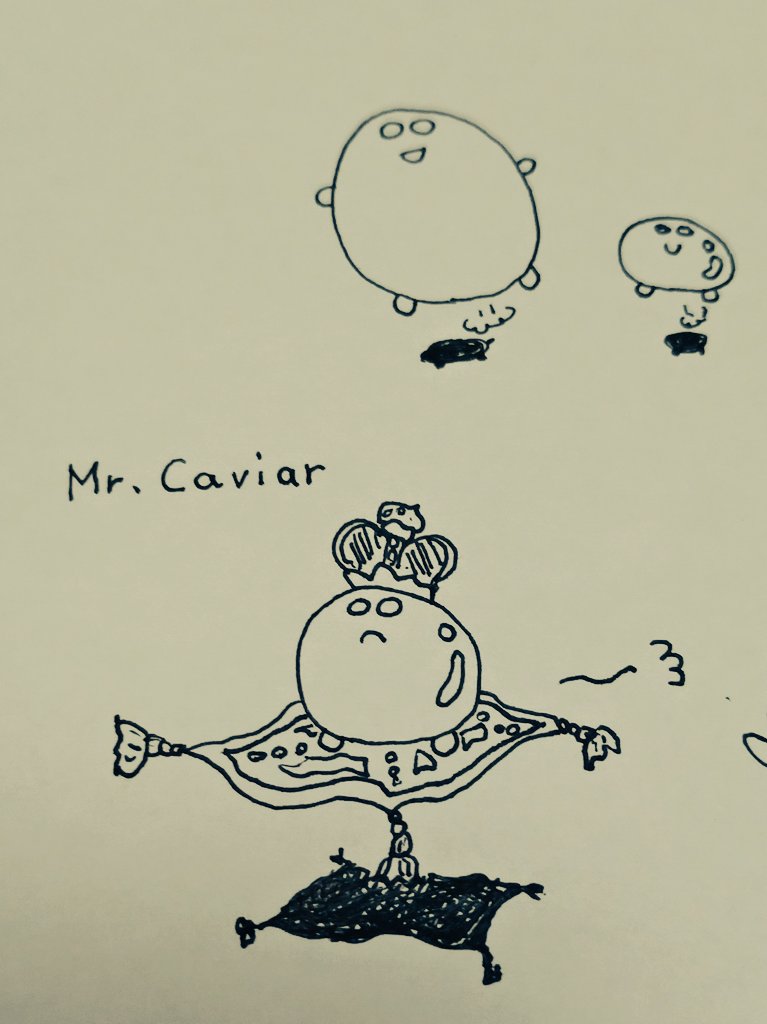 Mr. Caviar